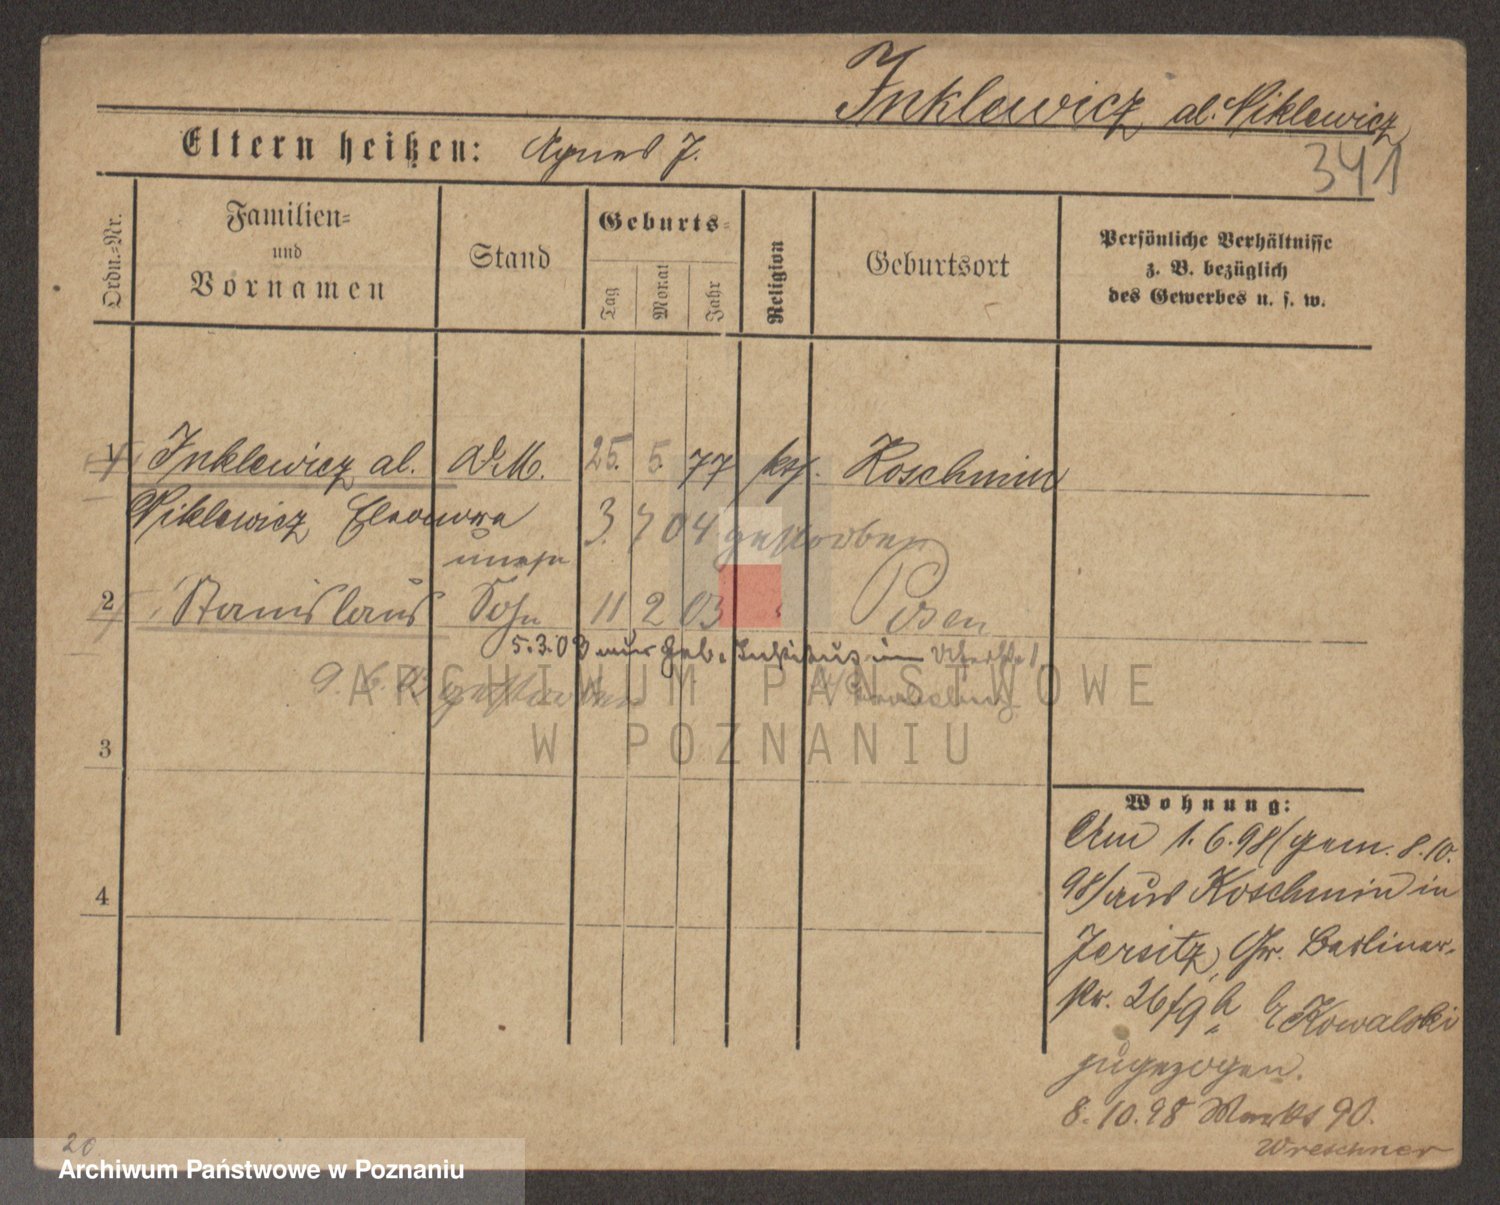 Inklewicz al. Niklewicz
Eltern heißen: Agnes J.
341
Ordn.-Nr.
Familien-
und
Vornamen
Stand
Geburts-
Tag
Monat
Jahr
Religion
Geburtsort
Persönliche Verhältnisse
z. B. bezüglich
des Gewerbes u. s. w.
1 Inklewicz al. D.M. 25. 5. 77 kth. Koschmin
Niklewicz Eleonora 3. 7 04 gestorben
uneh
2 Stanislaus Sohn 11 2 03 " Posen
5.3.03 aus Geb.
9. 6. 03 gestorben
ARCHIWUM PAŃSTWOWE
W POZNANIU
3
4
Wohnung:
Am 1.6.98/gem. 8.10.
98/aus Koschmin in
Jersitz, Gr. Berliner-
str. 26/9 b Kowalski
zugezogen.
8.10.98 90.
Wreschner
20
Archiwum Państwowe w Poznaniu